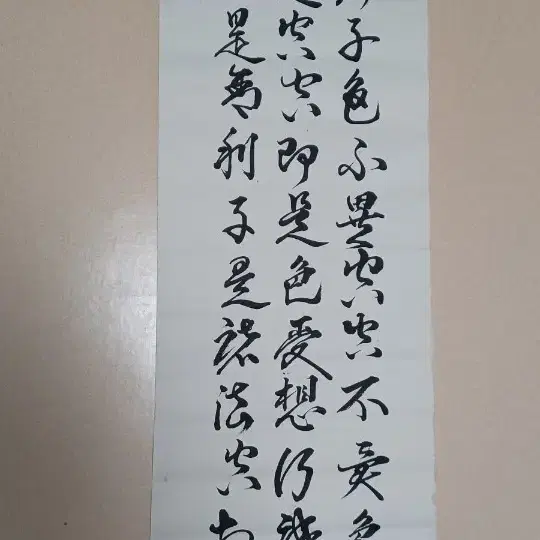 子色不異空空不異色
是空空即是色受想行識
是舍利子是諸法空相